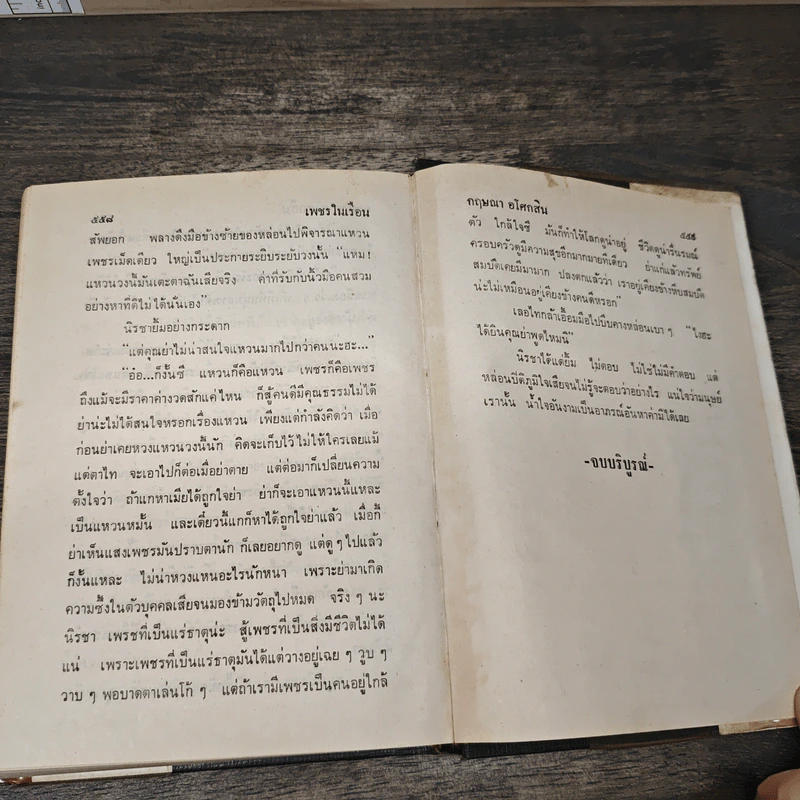 ๕๕๘
เพชรในเรือน
สัพยอก พลางดึงมือข้างซ้ายของหล่อนไปพิจารณาแหวน
เพชรเม็ดเดียว ใหญ่เป็นประกายระยิบระยับวงนั้น “แหม!
แหวนวงนี้มันเตะตาฉันเสียจริง ค่าที่รับกับนิ้วมือคนสวม
อย่างหาที่ติไม่ได้นั่นเอง”
นิรชายิ้มอย่างกระดาก
“แต่คุณย่าไม่น่าสนใจแหวนมากไปกว่าคนนะฮะ...”
“อ๋อ...ก็งั้นซี แหวนก็คือแหวน เพชรก็คือเพชร
ถึงแม้จะมีราคาค่างวดสักแค่ไหน ก็สู้คนดีมีคุณธรรมไม่ได้
ย่าน่ะไม่ได้สนใจหรอกเรื่องแหวน เพียงแต่กำลังคิดว่า เมื่อ
ก่อนย่าเคยหวงแหวนวงนี้นัก คิดจะเก็บไว้ไม่ให้ใครเลยแม้
แต่ตาไท จะเอาไปก็ต่อเมื่อย่าตาย แต่ต่อมาก็เปลี่ยนความ
ตั้งใจว่า ถ้าแกหาเมียได้ถูกใจย่า ย่าก็จะเอาแหวนนี้แหละ
เป็นแหวนหมั้น และเดี๋ยวนี้แกก็หาได้ถูกใจย่าแล้ว เมื่อกี้
ย่าเห็นแสงเพชรมันปราบตานัก ก็เลยอยากดู แต่ดูๆ ไปแล้ว
ก็งั้นแหละ ไม่น่าหวงแหนอะไรนักหนา เพราะย่ามาเกิด
ความซึ้งในตัวบุคคลเสียจนมองข้ามวัตถุไปหมด จริง ๆ นะ
นิรชา เพรชที่เป็นแร่ธาตุน่ะ สู้เพชรที่เป็นสิ่งมีชีวิตไม่ได้
แน่ เพราะเพชรที่เป็นแร่ธาตุมันได้แต่วางอยู่เฉย ๆ วูบ ๆ
วาบ ๆ พอบาดตาเล่นโก้ ๆ แต่ถ้าเรามีเพชรเป็นคนอยู่ใกล้
กฤษณา อโศกสิน
๕๕๙
ตัว ใกล้ใจซี มันก็ทำให้โลกดูน่าอยู่ ชีวิตดูน่ารื่นรมณ์
ครอบครัวดูมีความสุขอีกมากมายทีเดียว ย่าแก่แล้วทรัพย์
สมบัติเคยมีมามาก ปลงตกแล้วว่า เราอยู่เคียงข้างหีบสมบัติ
น่ะไม่เหมือนอยู่เคียงข้างคนดีหรอก”
เลอไทกล้าเอื้อมมือไปบีบคางหล่อนเบา ๆ “ไงฮะ
ได้ยินคุณย่าพูดไหมนี่”
นิรชาได้แต่ยิ้ม ไม่ตอบ ไม่ใช่ไม่มีคำตอบ แต่
หล่อนปิติภูมิใจเสียจนไม่รู้จะตอบว่าอย่างไร แน่ใจว่ามนุษย์
เรานั้น น้ำใจอันงามเป็นอาภรณ์อันหาค่ามิได้เลย
-จบบริบูรณ์-